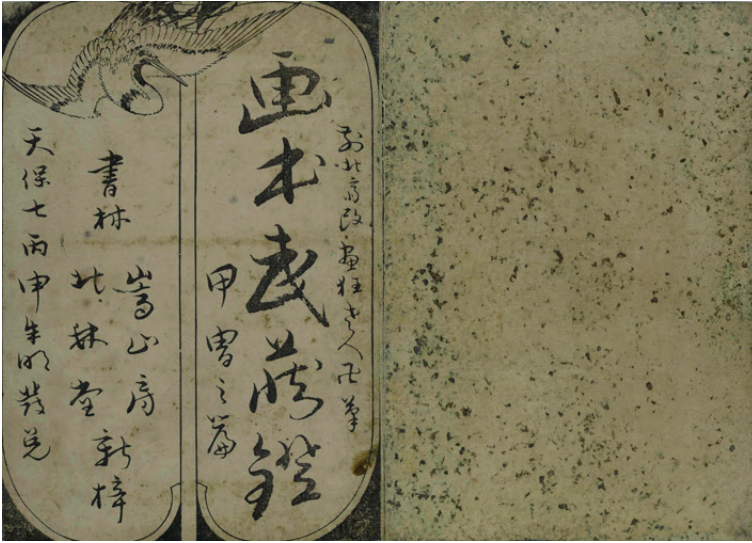 前北斎改畫狂老人卍筆
画本武蔵鐙
甲冑之篇
書林
嵩山房
北林堂
新梓
天保七丙申年發兌